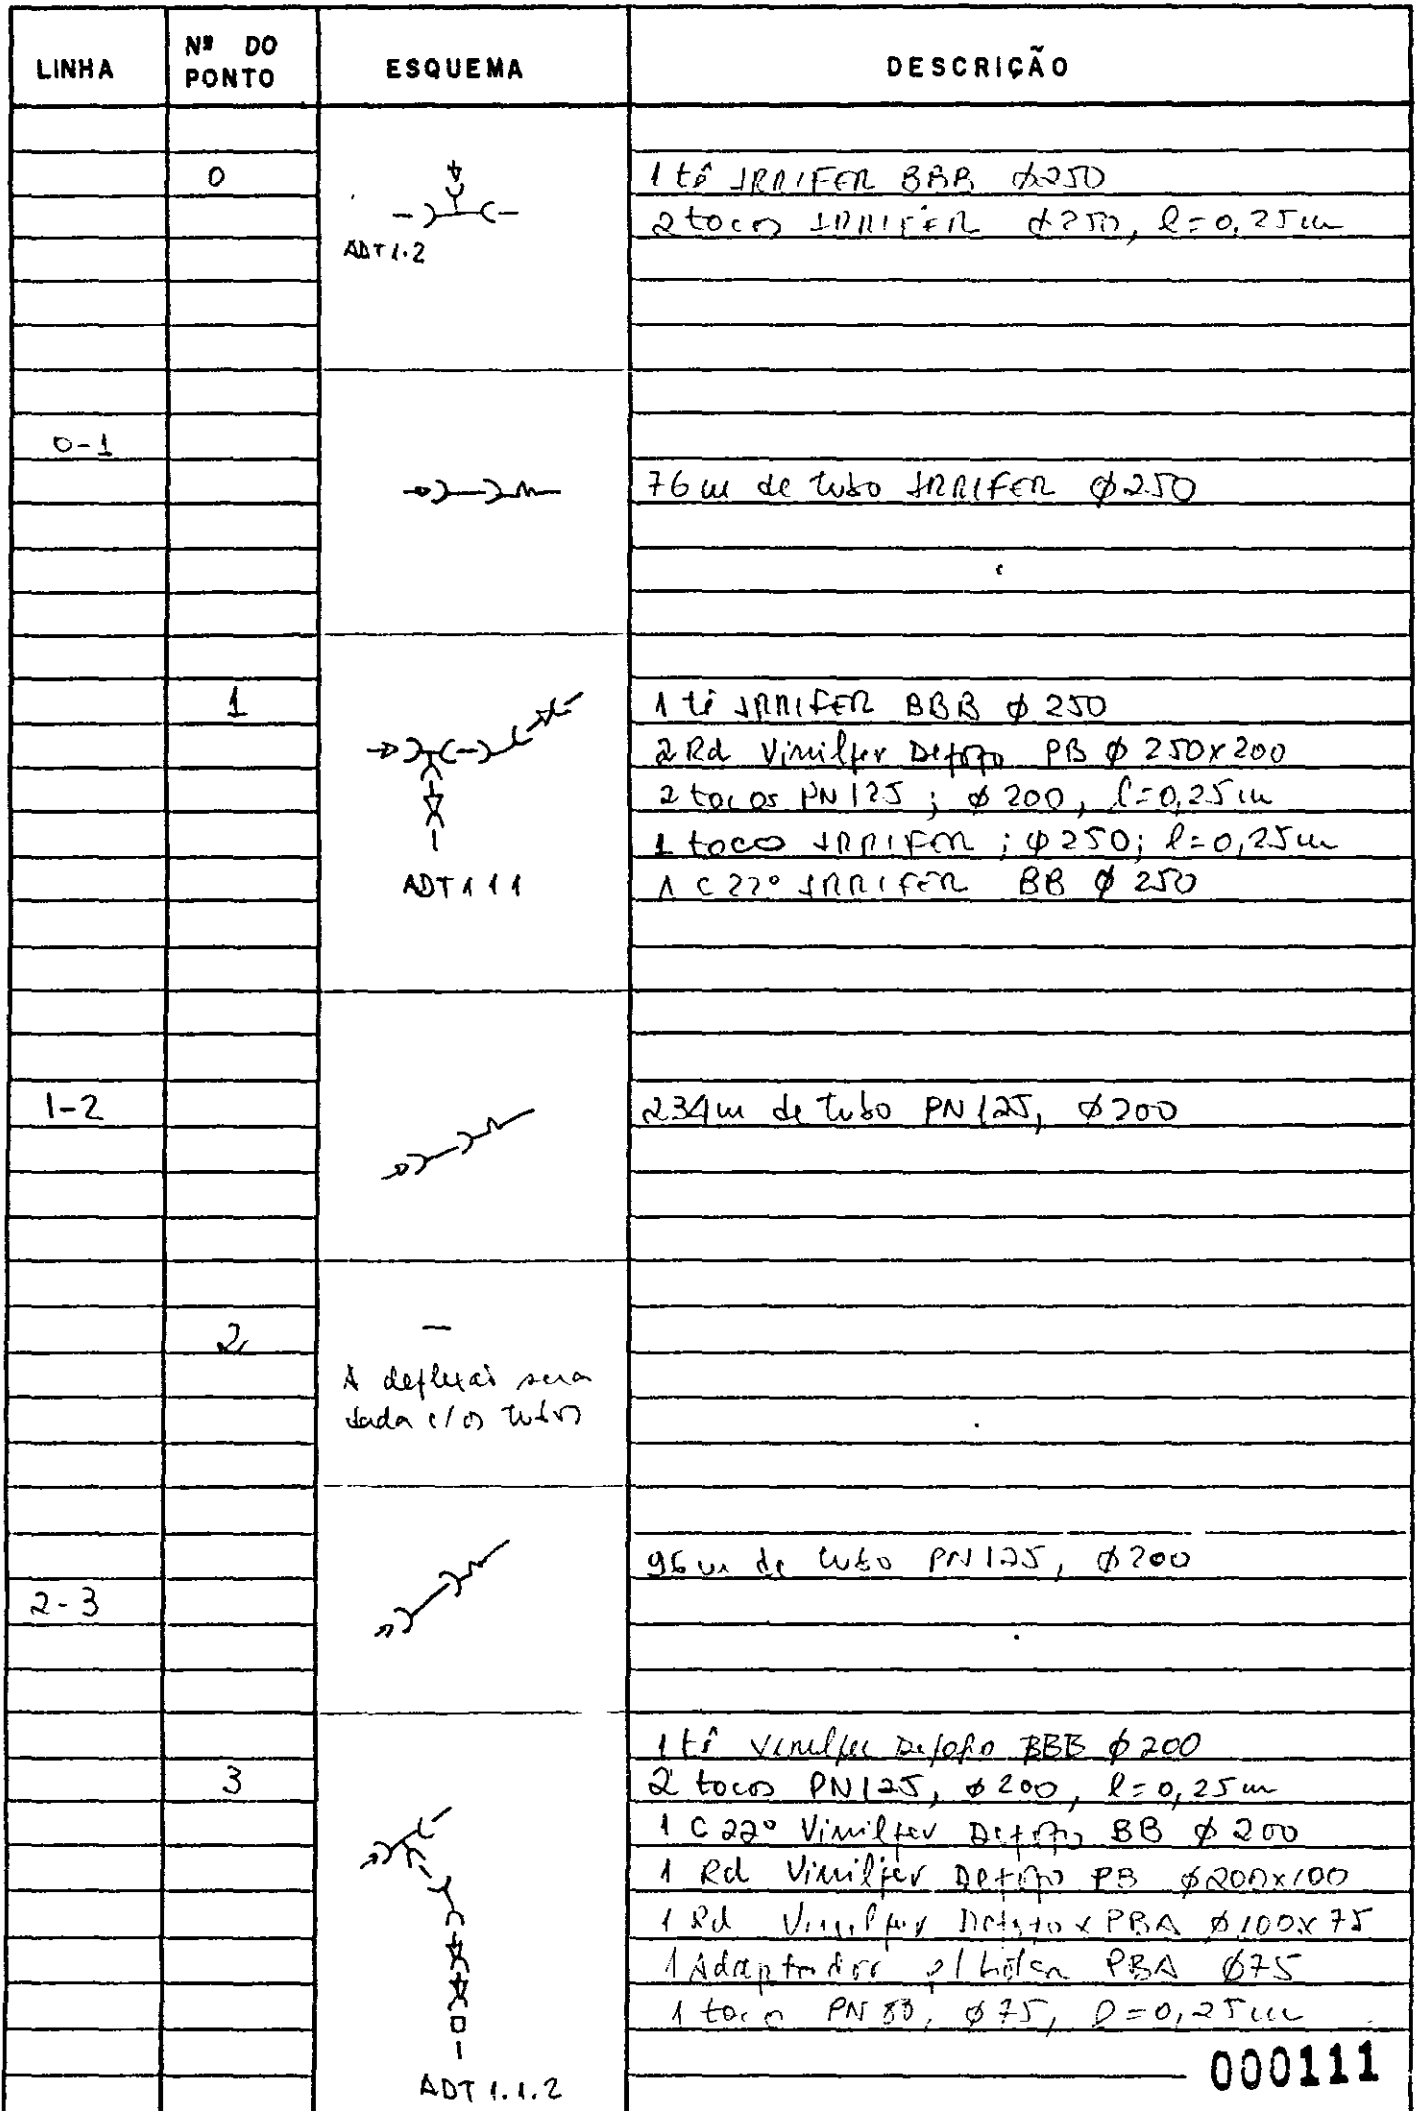 LINHA
Nº DO
PONTO
ESQUEMA
DESCRIÇÃO
0
ADT 1.2
1 tê IRRIFER BBB ø250
2 tocos IRRIFER ø250, l=0,25m
0-1
76 m de tubo IRRIFER ø250
1
ADT 1 1 1
1 tê IRRIFER BBB ø 250
2 Rd Vinilfer Defofo PB ø 250x200
2 tocos PN 125 ; ø 200, l=0,25m
1 toco IRRIFER ; ø250; l=0,25m
1 C 22º IRRIFER BB ø 250
1-2
234m de tubo PN 125, ø200
2
A deflexão sera
dada c/os tubos
2-3
96 m de tubo PN 125, ø200
3
ADT 1.1.2
1 tê Vinilfer Defofo BBB ø 200
2 tocos PN 125, ø 200, l=0,25m
1 C 22º Vinilfer Defofo BB ø 200
1 Rd Vinilfer Defofo PB ø200x100
1 Rd Vinilfer Defofo x PBA ø100x75
1 Adaptador PBA ø75
1 toco PN 80, ø75, l=0,25m
000111